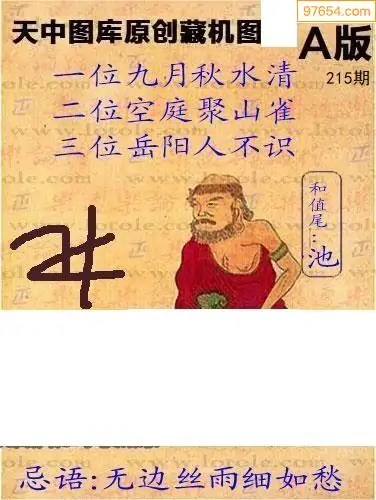 97654.com
天中图库原创藏机图
A版
215期
一位九月秋水清
二位空庭聚山雀
三位岳阳人不识
和值尾:池
www.lotole.com
忌语:无边丝雨细如愁